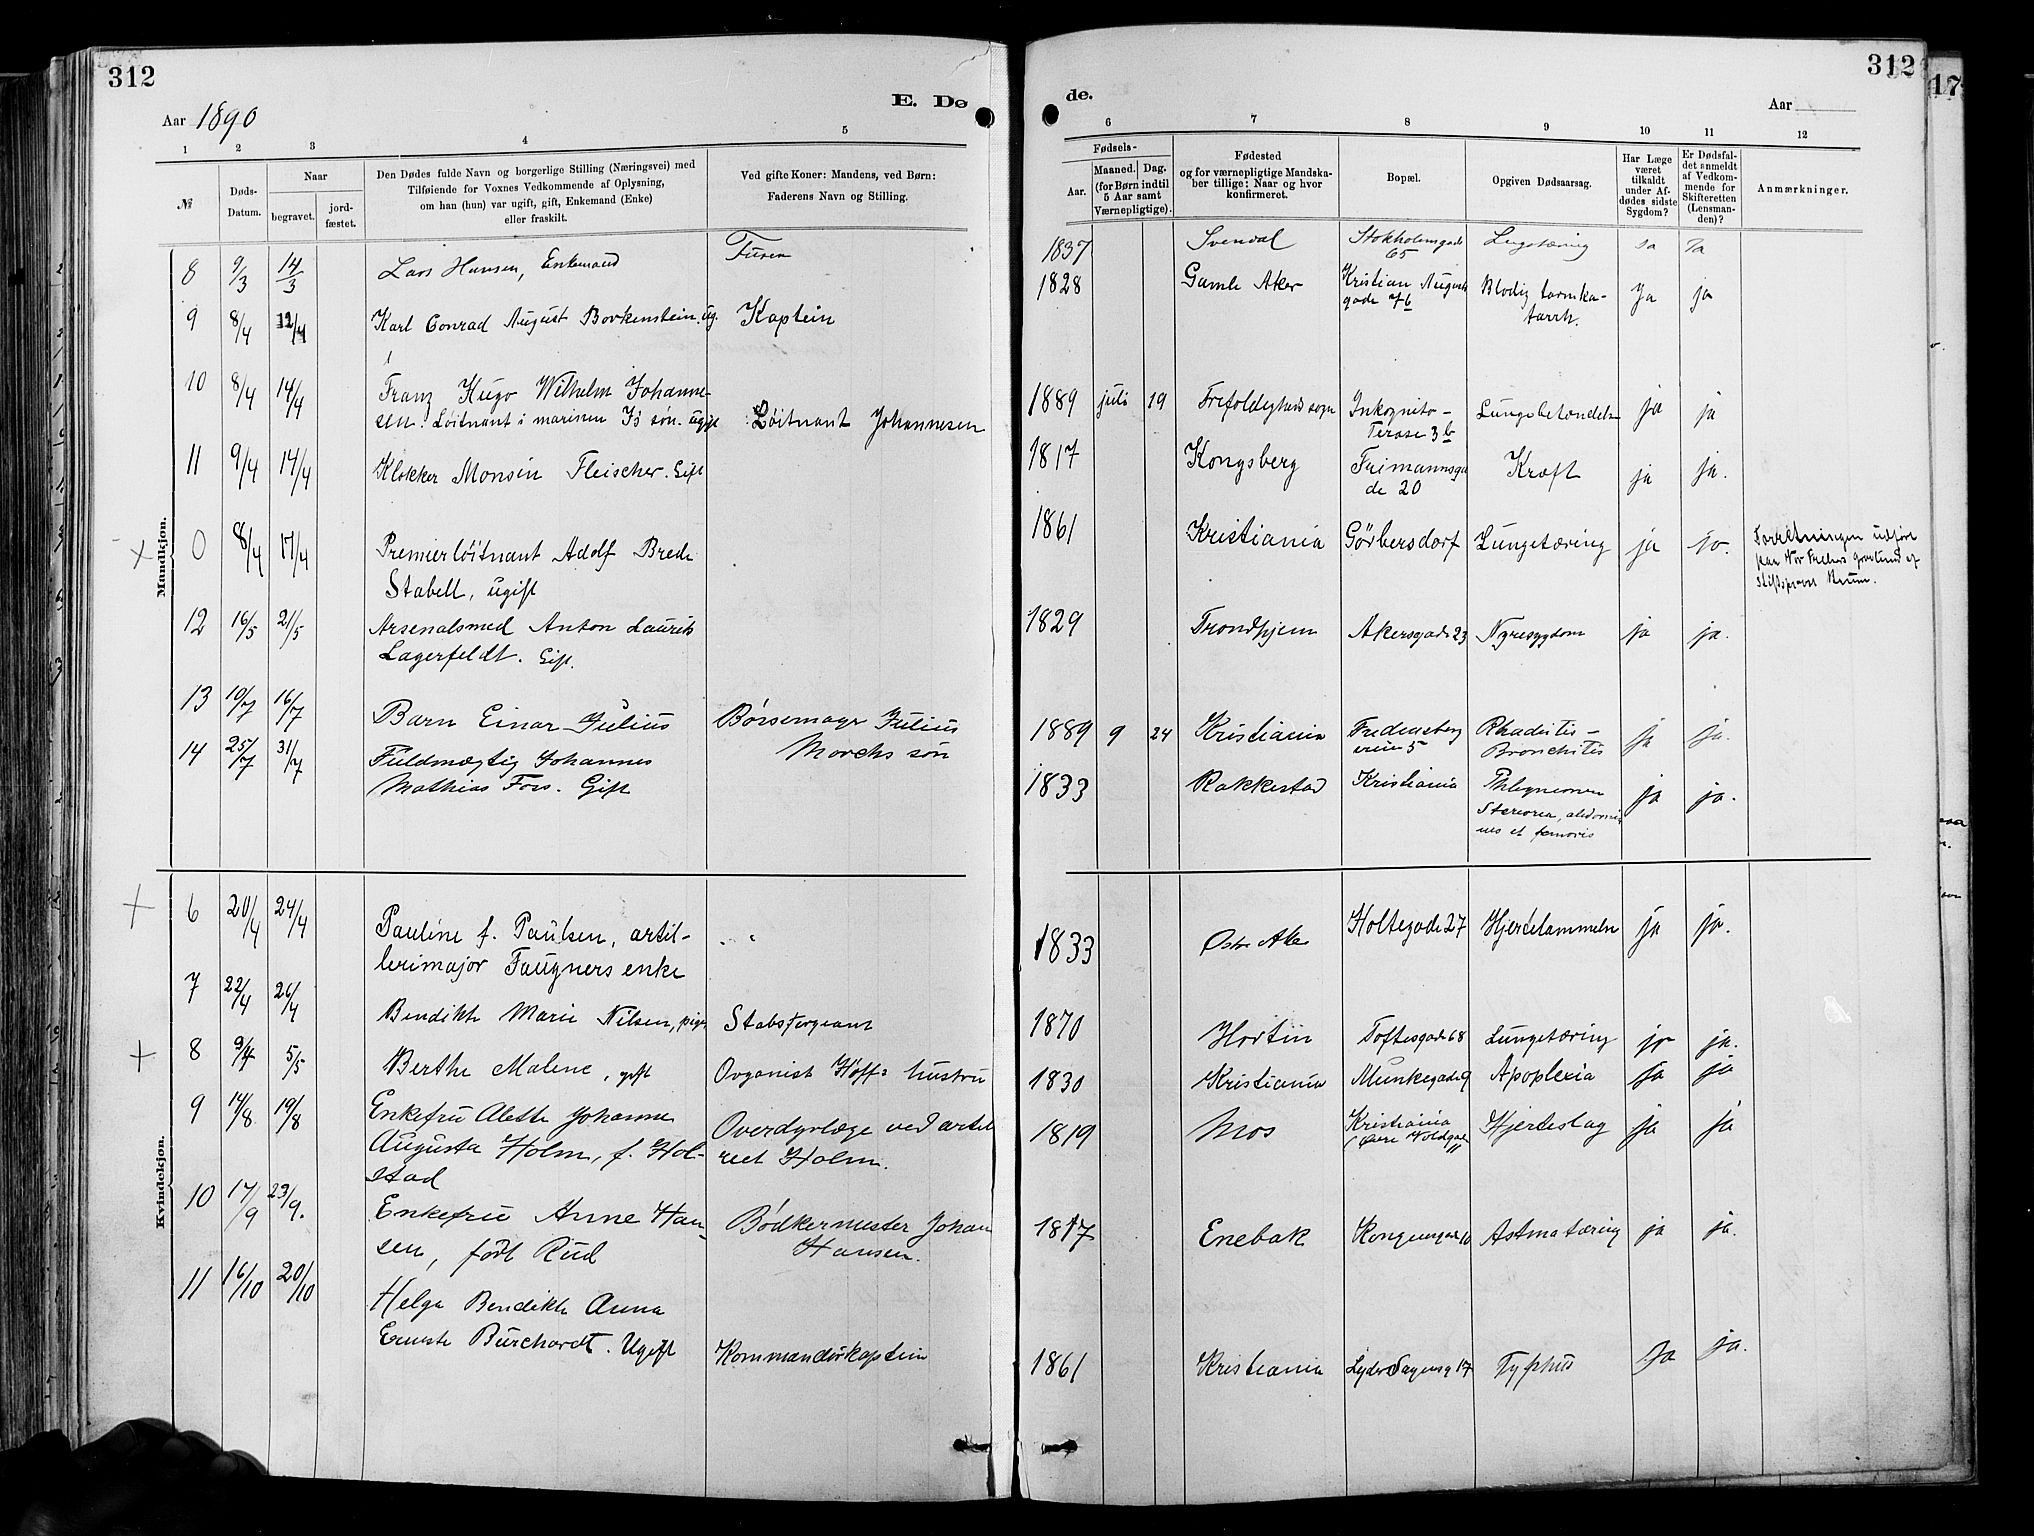 312
312
17
E. Dø
de.
Aar 1890
Aar
1 2 3 4 5
6 7 8 9 10 11 12
№
Døds-
Datum.
Naar
begravet.
jord-
fæstet.
Den Dødes fulde Navn og borgerlige Stilling (Næringsvei) med
Tilføiende for Voxnes Vedkommende af Oplysning,
om han (hun) var ugift, gift, Enkemand (Enke)
eller fraskilt.
Ved gifte Koner: Mandens, ved Børn:
Faderens Navn og Stilling.
Fødsels-
Aar.
Maaned. Dag.
(for Børn indtil
5 Aar samt
Værnepligtige).
Fødested
og for værnepligtige Mandska-
ber tillige: Naar og hvor
konfirmeret.
Bopæl.
Opgiven Dødsaarsag.
Har Læge
været
tilkaldt
under Af-
dødes sidste
Sygdom?
Er Dødsfal-
det anmeldt
af Vedkom-
mende for
Skifteretten
(Lensman-
den)?
Anmærkninger.
Mandkjøn.
8 9/3 14/3 Lars Hansen, Enkemand
1837 Svendal Stokholmsgade 65 Lungetæring Ja Ja
9 8/4 12/4 Karl Conrad August Borkenstein. ug. Kaptein
1828 Gamle Aker Kristian Augusts
gade 7b Blodig tarmka-
tarrh. Ja ja
10 8/4 14/4 Franz Hugo Wilhelm Johanne-
sen. Løitnant i marinen J's søn. ugift Løitnant Johannesen
1889 juli 19 Trefoldigheds sogn Inkognito-
Terase 3b Lungebetændelse ja ja
11 9/4 14/4 Klokker Monsin Fleischer. Gift
1817 Kongsberg Frimannsga
de 20 Kræft ja ja.
0 8/4 17/4 Premierløitnant Adolf Brede
Stabell, ugift
1861 Kristiania Görbersdorf Lungetæring ja ja.
Forretningen udført
paa Vor Frelsers gravlund af
stiftsprovst
12 16/5 21/5 Arsenalsmed Anton Laurits
Lagerfeldt. Gift.
1829 Trondhjem Akersgade 23 Nyresygdom ja ja.
13 10/7 16/7 Barn Einar Julius Børsemager Julius
Morchs søn
1889 9 24 Kristiania Fredensborg
veien 5 Rhachitis -
Bronchitis ja ja.
14 25/7 31/7 Fuldmægtig Johannes
Mathias Foss. Gift
1833 Rakkestad Kristiania Phlegmonen
abdomi
nis et femoris ja ja.
Kvindekjøn.
6 20/4 24/4 Pauline f. Paulsen, artil-
lerimajor Faugners enke
1833 Østre Aker Holtegade 27 Hjertelammelse ja ja.
7 22/4 26/4 Bendikte Marie Nilsen, pige Stabssergeant
1870 Horten Toftesgade 68 Lungetæring ja ja.
8 5/5 Berthe Malene, gift Organist Hoffs hustru
1830 Kristiania Munkegade 9 Apoplexia ja ja
9 14/8 19/8 Enkefru Alette Johanne
Augusta Holm, f. Hol-
stad Overdyrlæge ved artil
riet Holm.
1819 Mos Kristiania
(Øvre Voldgade 11 Hjerteslag ja ja
10 17/9 23/9. Enkefru Anne Han-
sen, født Rud Bødkermester Johan
Hansen.
1817 Enebak Kongensgade 10 Astma tæring ja ja.
11 16/10 20/10 Helga Bendikte Anna
Erneste Burchardt. Ugift Kommandørkaptein
1861 Kristiania Lyder Sagensg 17 Typhus ja ja.